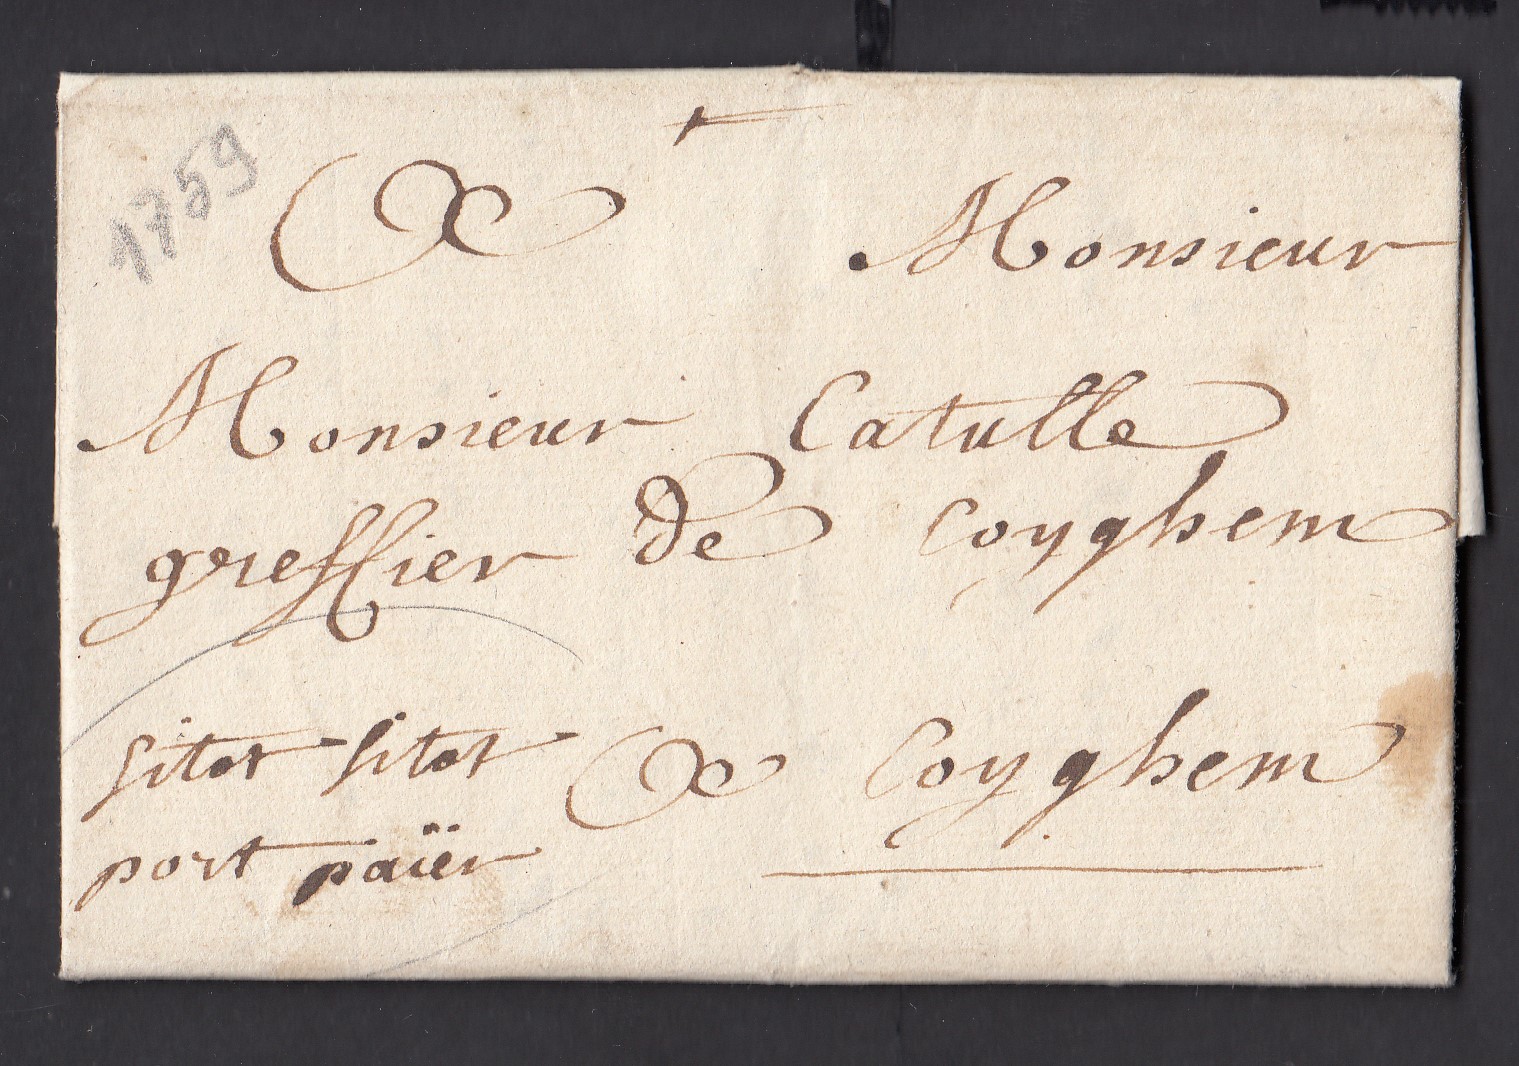 1759
A Monsieur
Monsieur Catulle
greffier de Coyghem
sitot sitot A Coyghem
port païer